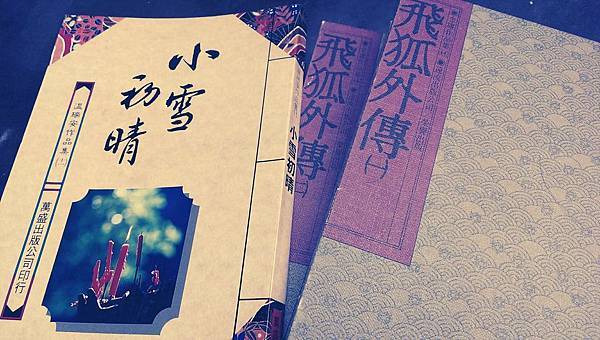 小雪
初晴
溫瑞安作品集(十二)
萬盛出版公司印行
小雪初晴
飛狐外傳(一)
飛狐外傳(一)